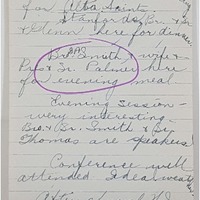 for Alba Saint.
Stanfords, Br. & Sr.
Glenn here for dinner.
Br. Smith & wife &
Bro & Sr Palmer here
for evening meal
Evening Session -
very interesting.
Bro. & Sr. Smith & Sr.
Thomas are speakers
Conference well
attended. Ideal weat